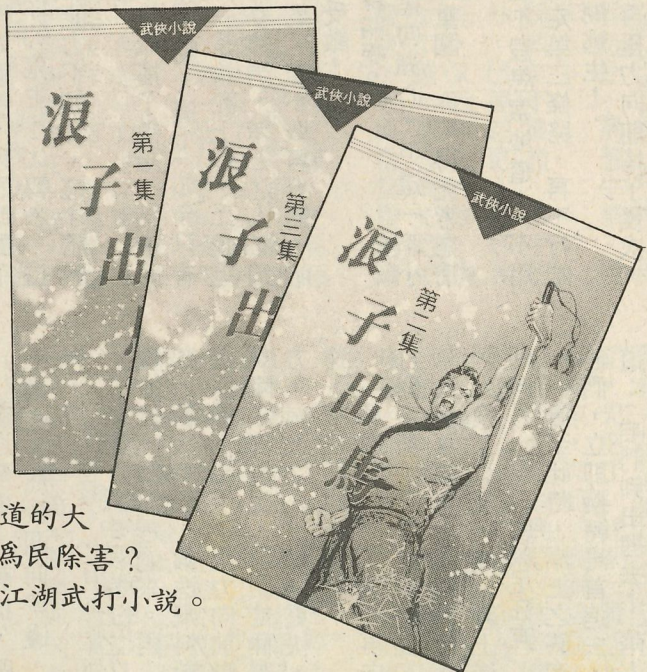 武俠小說
浪子出
第一集
武俠小說
浪子出
第三集
武俠小說
浪子出馬
第二集
道的大
爲民除害？
江湖武打小說。